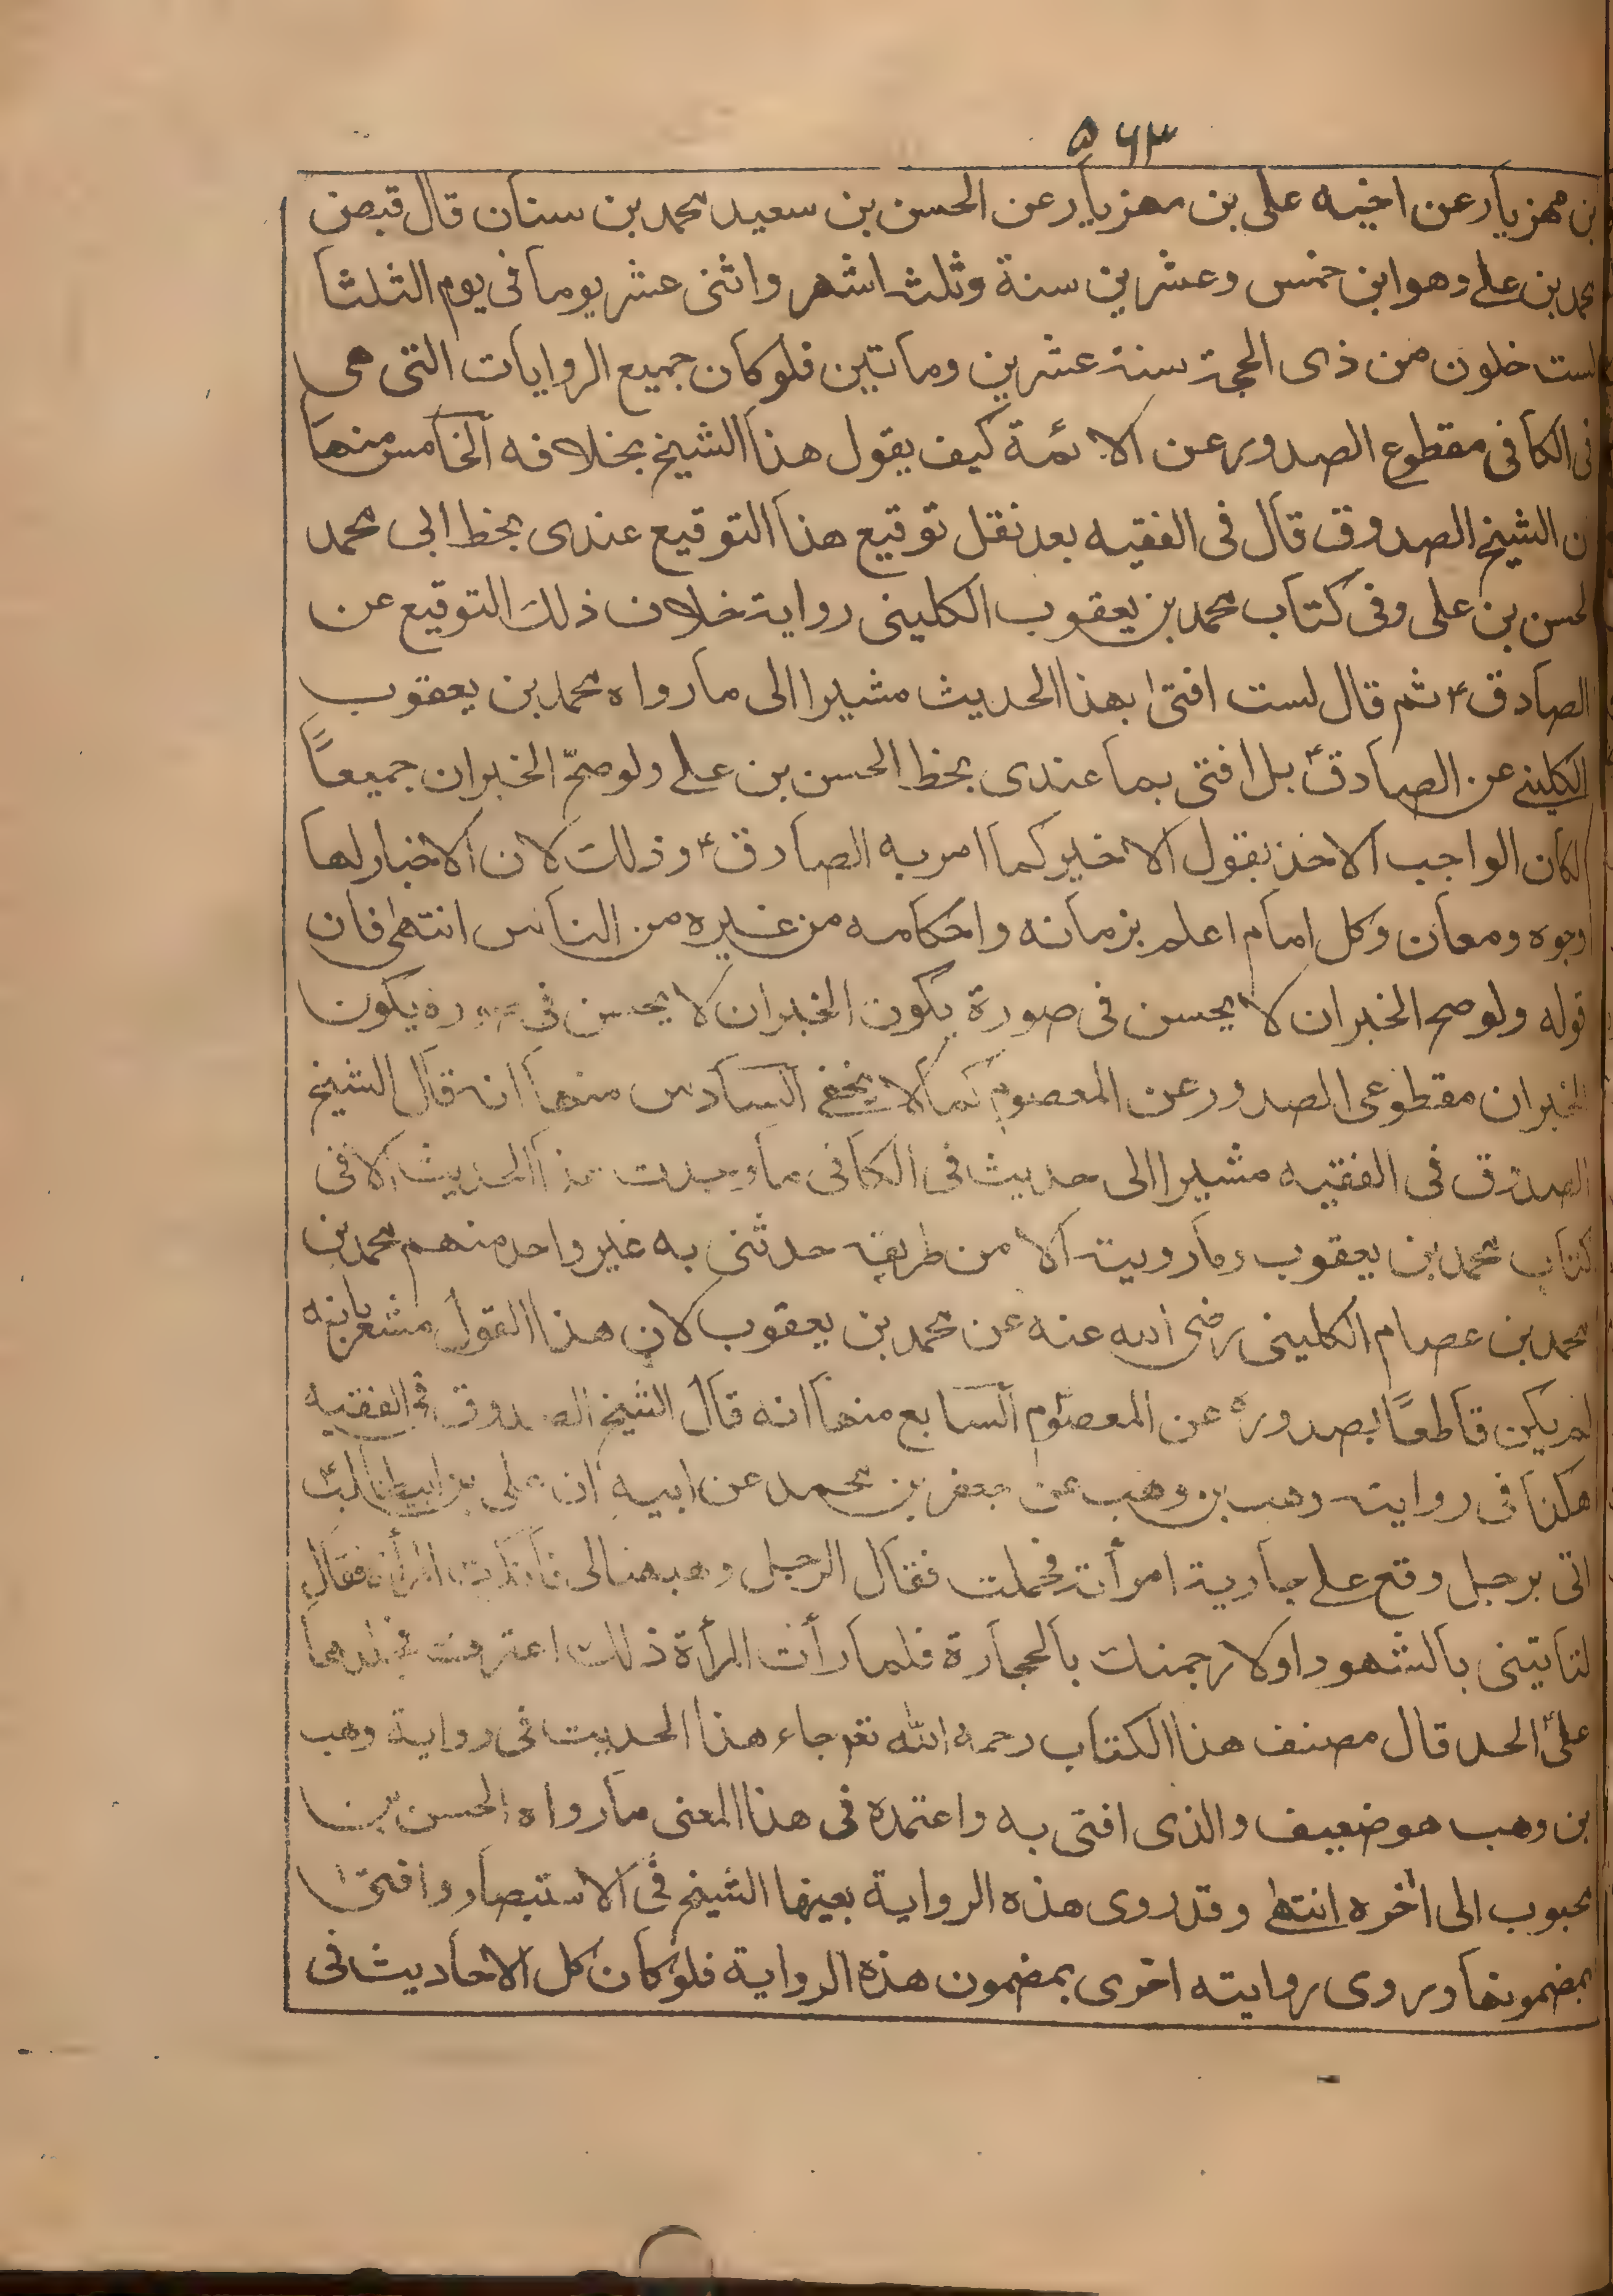 ۵۶۳
بن مهزيار عن اخيه على بن مهزيار عن الحسن بن سعيد محمد بن سنان قال قبض
محمد بن على وهو ابن خمس وعشرين سنة وثلث اشهر واثنى عشر يوما فى يوم الثلثا
لست خلون من ذى الحجة سنة عشرين ومأتين فلو كان جميع الروايات التى هى
فى الكافى مقطوع الصدور عن الائمة كيف يقول هذا الشيخ بخلافه الخامس منها
ن الشيخ الصدوق قال فى الفقيه بعد نقل توقيع هذا التوقيع عندى بخط ابى محمد
لحسن بن على وفى كتاب محمد بن يعقوب الكلينى رواية خلاف ذلك التوقيع عن
الصادق ع ثم قال لست افتى بهذا الحديث مشيرا الى ما رواه محمد بن يعقوب
الكلينى عن الصادق ع بل افتى بما عندى بخط الحسن بن على ولو صحّ الخبران جميعاً
لكان الواجب الاخذ بقول الاخير كما امر به الصادق ع وذلك لان الاخبار لها
وجوه ومعان وكل امام اعلم بزمانه واحكامه من غيره من الناس انتهى فان
قوله ولو صح الخبران لا يحسن فى صورة يكون الخبران لا يحسن فى صورة يكون
الخبران مقطوعى الصدور عن المعصوم كما لا يخفى السادس منها انه قال الشيخ
الصدوق فى الفقيه مشيرا الى حديث فى الكافى ما وجدت هذا الحديث الا فى
كتاب محمد بن يعقوب وما رويته الا من طريقه حدثنى به غير واحد منهم محمد بن
محمد بن عصام الكلينى رضى الله عنه عن محمد بن يعقوب لان هذا القول مشعر بانه
لم يكن قاطعًا بصدوره عن المعصوم السابع منها انه قال الشيخ الصدوق فى الفقيه
هكذا فى رواية وهب بن وهب عن جعفر بن محمد عن ابيه ان على بن ابيطالب ع
اتى برجل وقع على جارية امرأته فحملت فقال الرجل وهبها لى فانكرت المرأة فقال
لتأتينى بالشهود او لارجمنك بالحجارة فلما رأت المرأة ذلك اعترفت فجلدها
على ع الحد قال مصنف هذا الكتاب رحمه الله تع جاء هذا الحديث فى رواية وهب
بن وهب هو ضعيف والذى افتى به واعتمده فى هذا المعنى ما رواه الحسن بن
محبوب الى اخره انتهى وقد روى هذه الرواية بعينها الشيخ فى الاستبصار وافتى
بمضمونها وروى روايته اخرى بمضمون هذه الرواية فلو كان كل الاحاديث فى